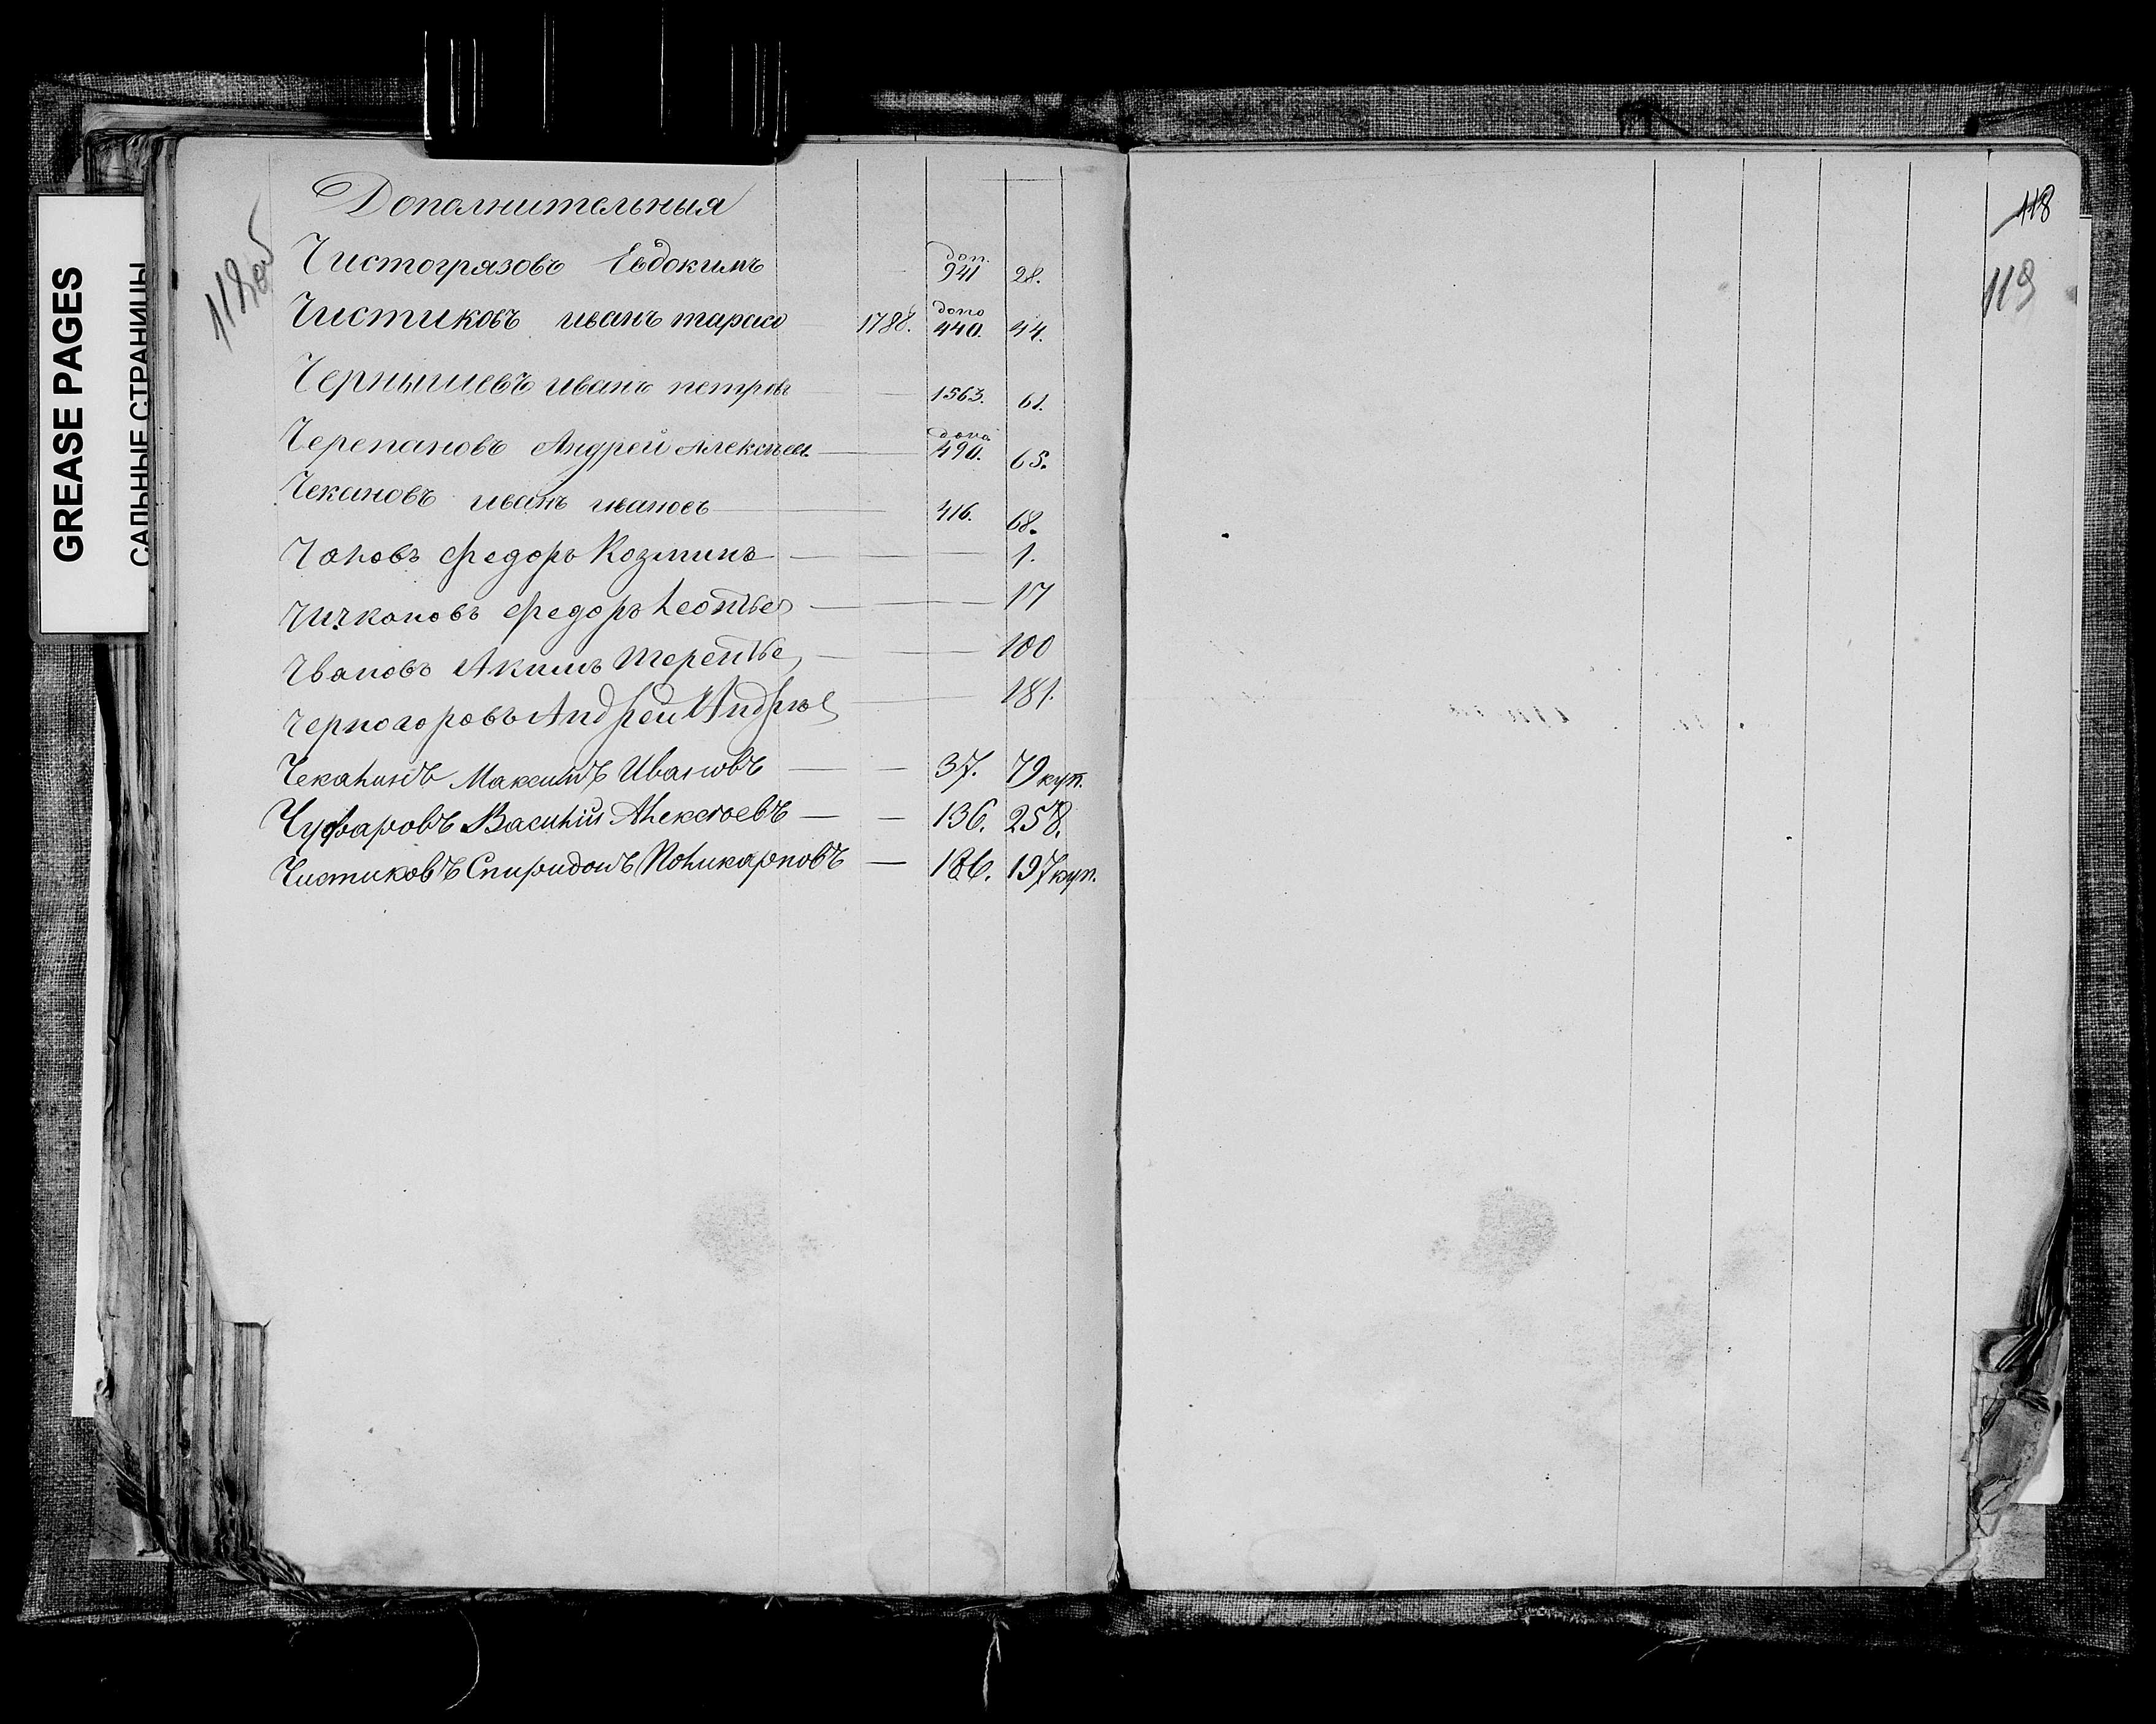 GREASE PAGES
САЛЬНЫЕ СТРАНИЦЫ
118об
Дополнительныя
Чистогрязовъ Евдокимъ — доп. 941 28.
Чистиковъ иванъ тарасо — 1788. допо 440. 44.
Чернышевъ иванъ петровъ — 1563. 61.
Черепановъ Андрей Алексѣев. — допо 490. 65.
Чекановъ иванъ ивановъ — 416. 68.
Чановъ Федоръ Козминъ — 1.
Чичкановъ Федоръ Леонтье — 17
Чвановъ Акимъ Терентье — 100
Черногоровъ Андрей Андрѣе — 181.
Чекалинъ Максимъ Ивановъ — 37. 79 куп.
Чуфаровъ Василій Алексѣевъ — 136. 258.
Чистиковъ Спиридонъ Поликарповъ — 186. 197 куп.
118
119